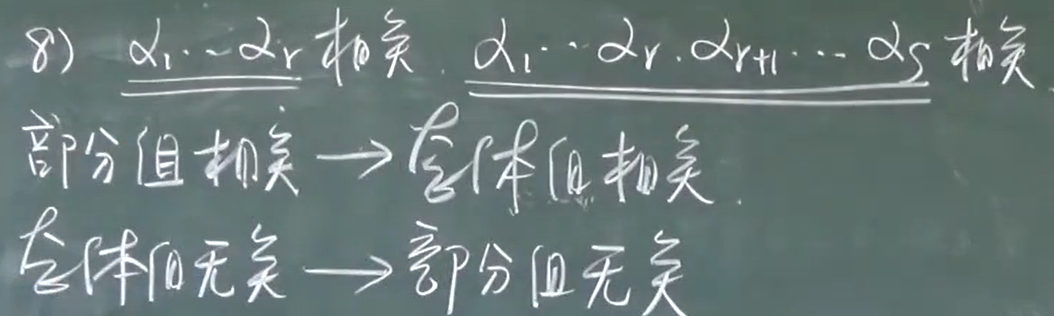 8) α₁…αᵣ 相关. α₁…αᵣ.αᵣ₊₁…αₛ 相关.
部分组相关→整体组相关.
整体组无关→部分组无关